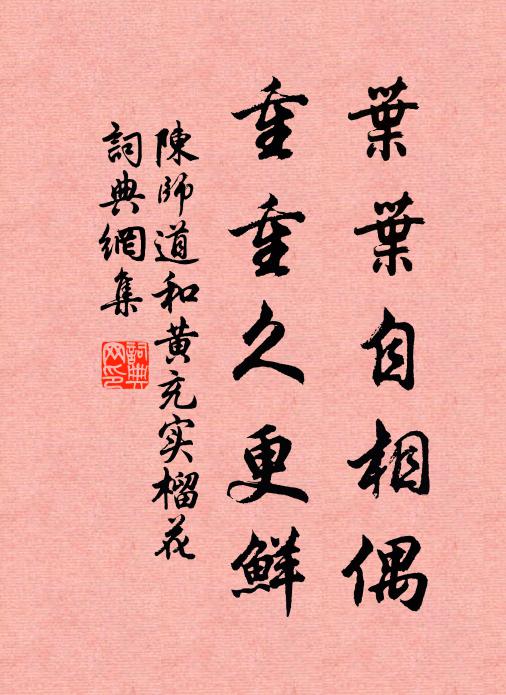 葉葉自相偶
重重久更鮮
陳師道和黄充实榴花
詞典網集
詞典网印